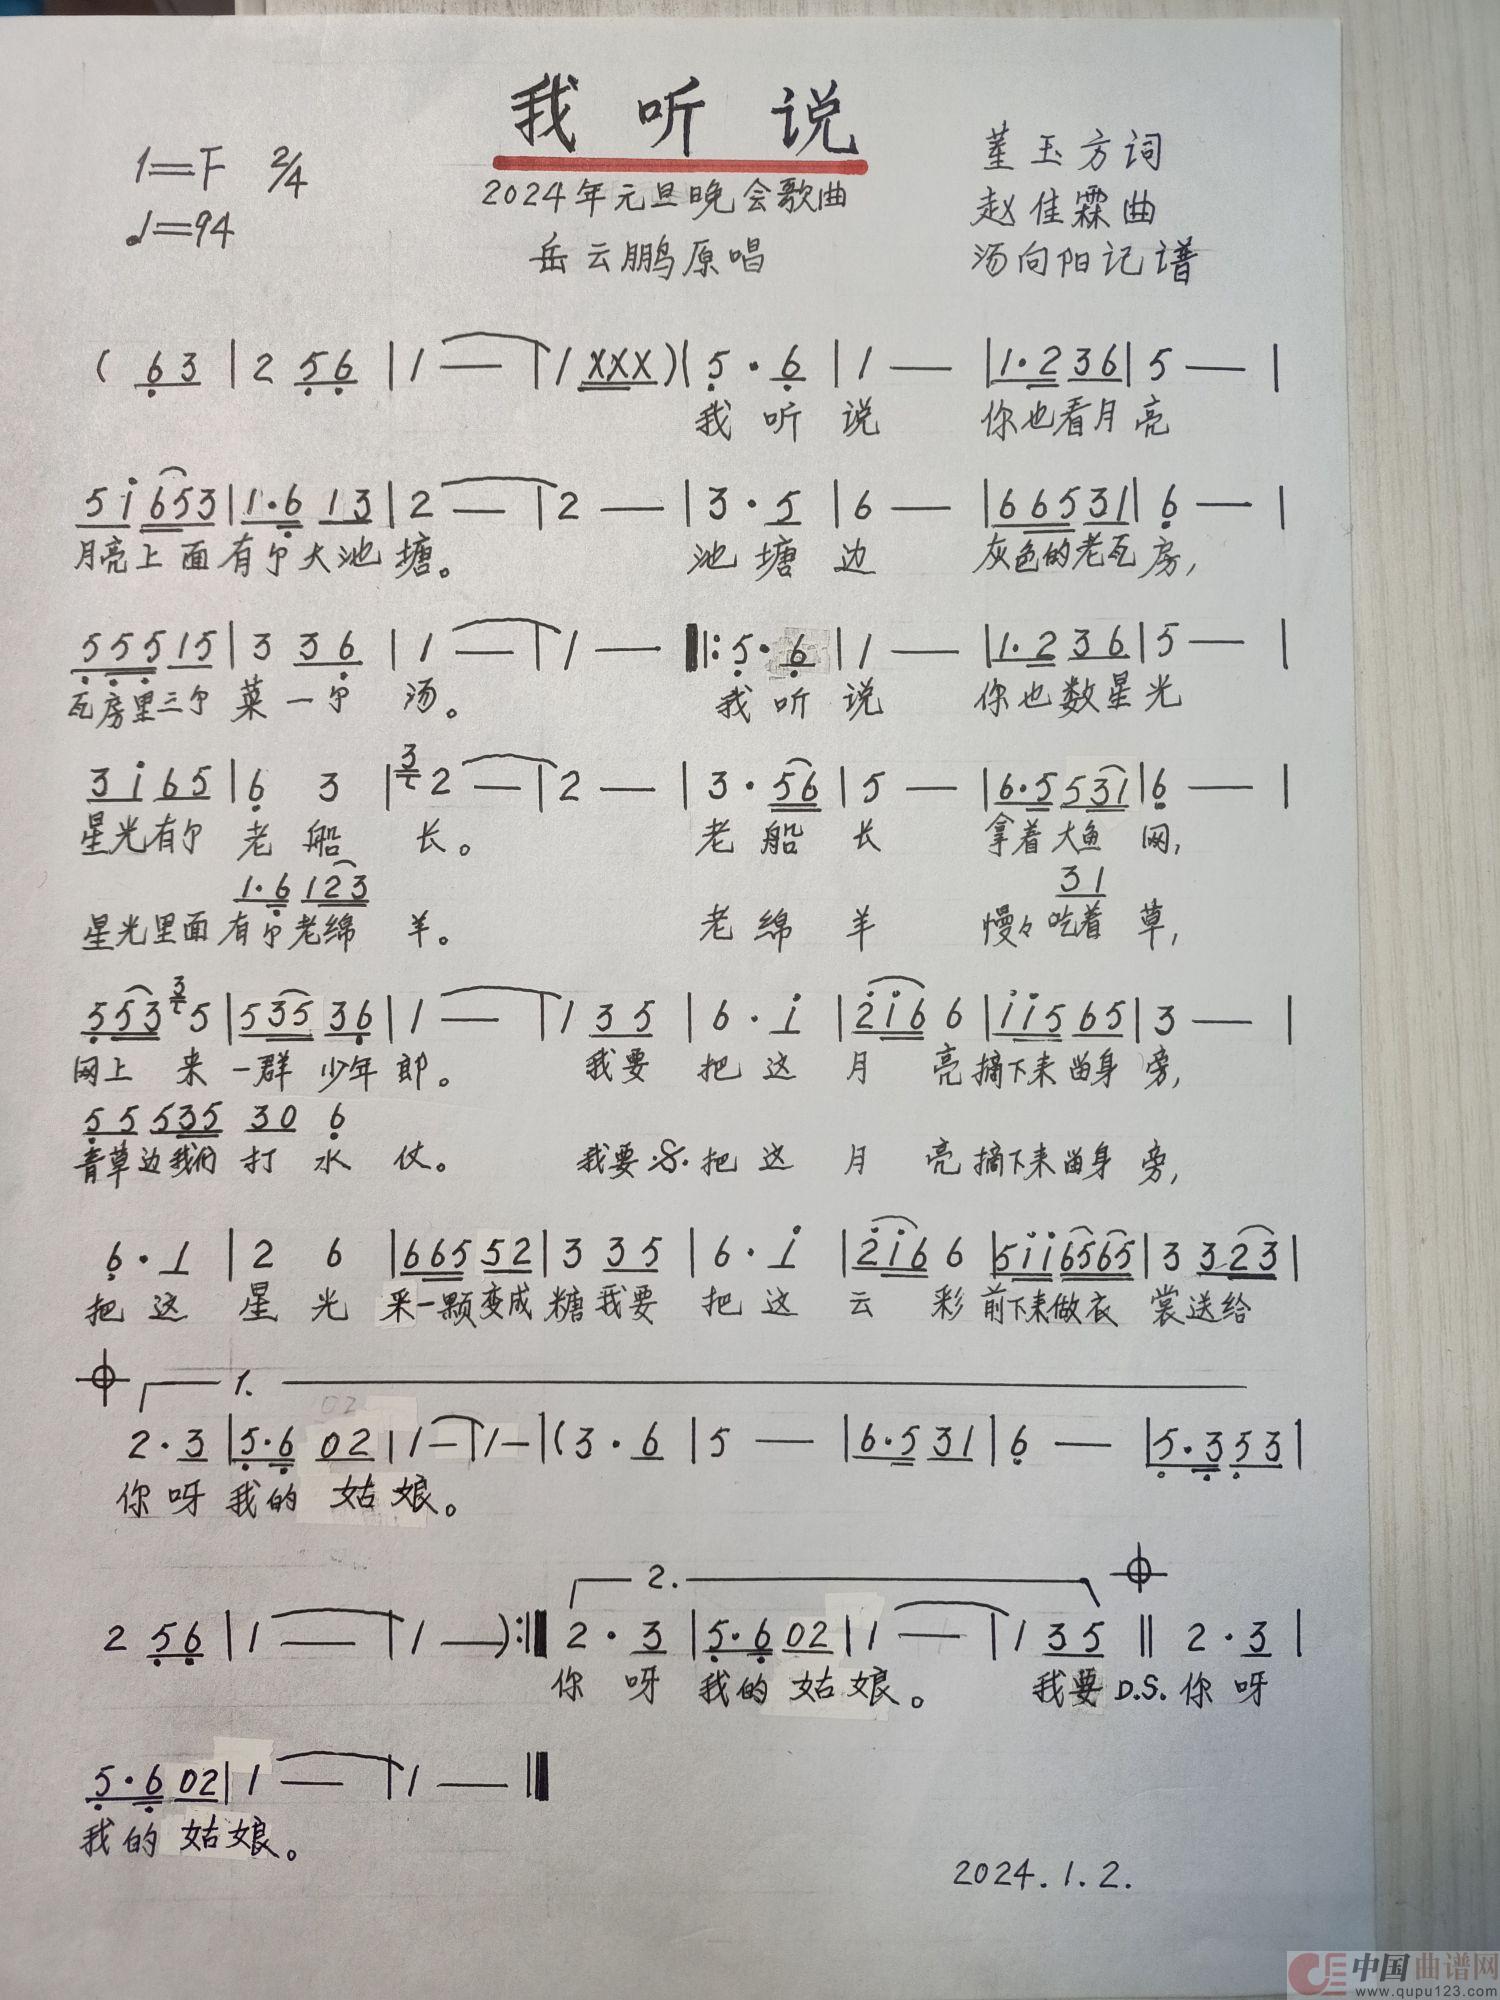 我听说
1=F 2/4
♩=94
2024年元旦晚会歌曲
岳云鹏原唱
董玉方词
赵佳霖曲
汤向阳记谱
( 6 3 | 2 5 6 | 1 — | 1 XXX )( 5 · 6 | 1 — | 1 · 2 3 6 | 5 — |
我听说 你也看月亮
5 i 6 5 3 | 1 · 6 1 3 | 2 — | 2 — | 3 · 5 | 6 — | 6 6 5 3 1 | 6 — |
月亮上面有个大池塘。 池塘边 灰色的老瓦房,
5 5 5 1 5 | 3 3 6 | 1 — | 1 — |: 5 · 6 | 1 — | 1 · 2 3 6 | 5 — |
瓦房里三个菜一个汤。 我听说 你也数星光
3 i 6 5 | 6 3 | 3 2 — | 2 — | 3 · 5 6 | 5 — | 6 · 5 5 3 1 | 6 — |
星光有个老船长。 老船长 拿着大鱼网,
1 · 6 1 2 3 3 1
星光里面有个老绵羊。 老绵羊 慢々吃着草,
5 5 3 3 5 | 5 3 5 3 6 | 1 — | 1 3 5 | 6 · i | 2 i 6 6 | i i 5 6 5 | 3 — |
网上来一群少年郎。 我要把这月亮摘下来当身旁,
5 5 5 3 5 3 0 6
青草边我们打水仗。 我要 𝄋 把这月亮摘下来当身旁,
6 · 1 | 2 6 | 6 6 5 5 2 | 3 3 5 | 6 · i | 2 i 6 6 | 5 i i 6 5 6 5 | 3 3 2 3 |
把这星光采一颗变成糖我要把这云彩前下来做衣裳送给
1.
2 · 3 | 5 · 6 0 2 | 1 — | 1 — | ( 3 · 6 | 5 — | 6 · 5 3 1 | 6 — | 5 · 3 5 3 |
你呀我的姑娘。
2.
2 5 6 | 1 — | 1 — ) :| 2 · 3 | 5 · 6 0 2 | 1 — | 1 3 5 || 2 · 3 |
你呀我的姑娘。 我要 D.S. 你呀
5 · 6 0 2 | 1 — | 1 — ||
我的姑娘。
2024.1.2.
中国曲谱网
www.qupu123.com